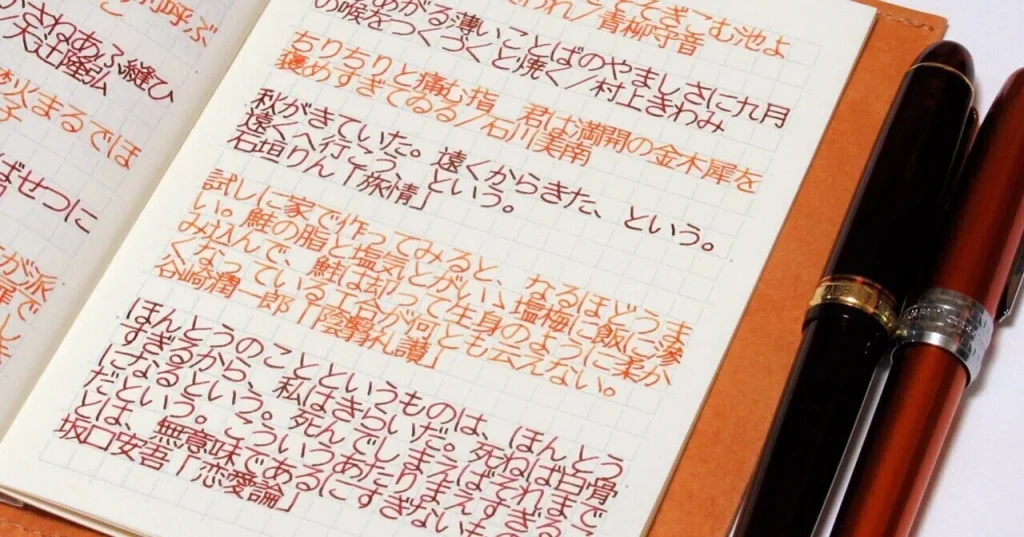 呼ぶ
さねあふ縫ひ
／大辻隆弘
火まるでほ
子
ばせつに
が派
で
し
そぎこむ池よ
われ／青柳守音
あがる薄いことばのやましさに九月
の喉をつくづくと焼く／村上きわみ
ちりちりと痛む指　君は満開の金木犀を
褒めすぎてゐる／石川美南
秋がきていた。遠くからきた、という。
遠くへ行こう、という。
石垣りん「旅情」
試しに家で作ってみると、なるほどうま
い。鮭の脂と塩気とがいい塩梅に飯に滲
み込んで、鮭は却って生身のように柔か
くなっている工合が何とも云えない。
谷崎潤一郎「陰翳礼讃」
ほんとうのことというものは、ほんとう
すぎるから、私はきらいだ。死ねば白骨
になるという。死んでしまえばそれまで
だという。こういうあたりまえすぎるこ
とは、無意味であるにすぎないも
坂口安吾「恋愛論」